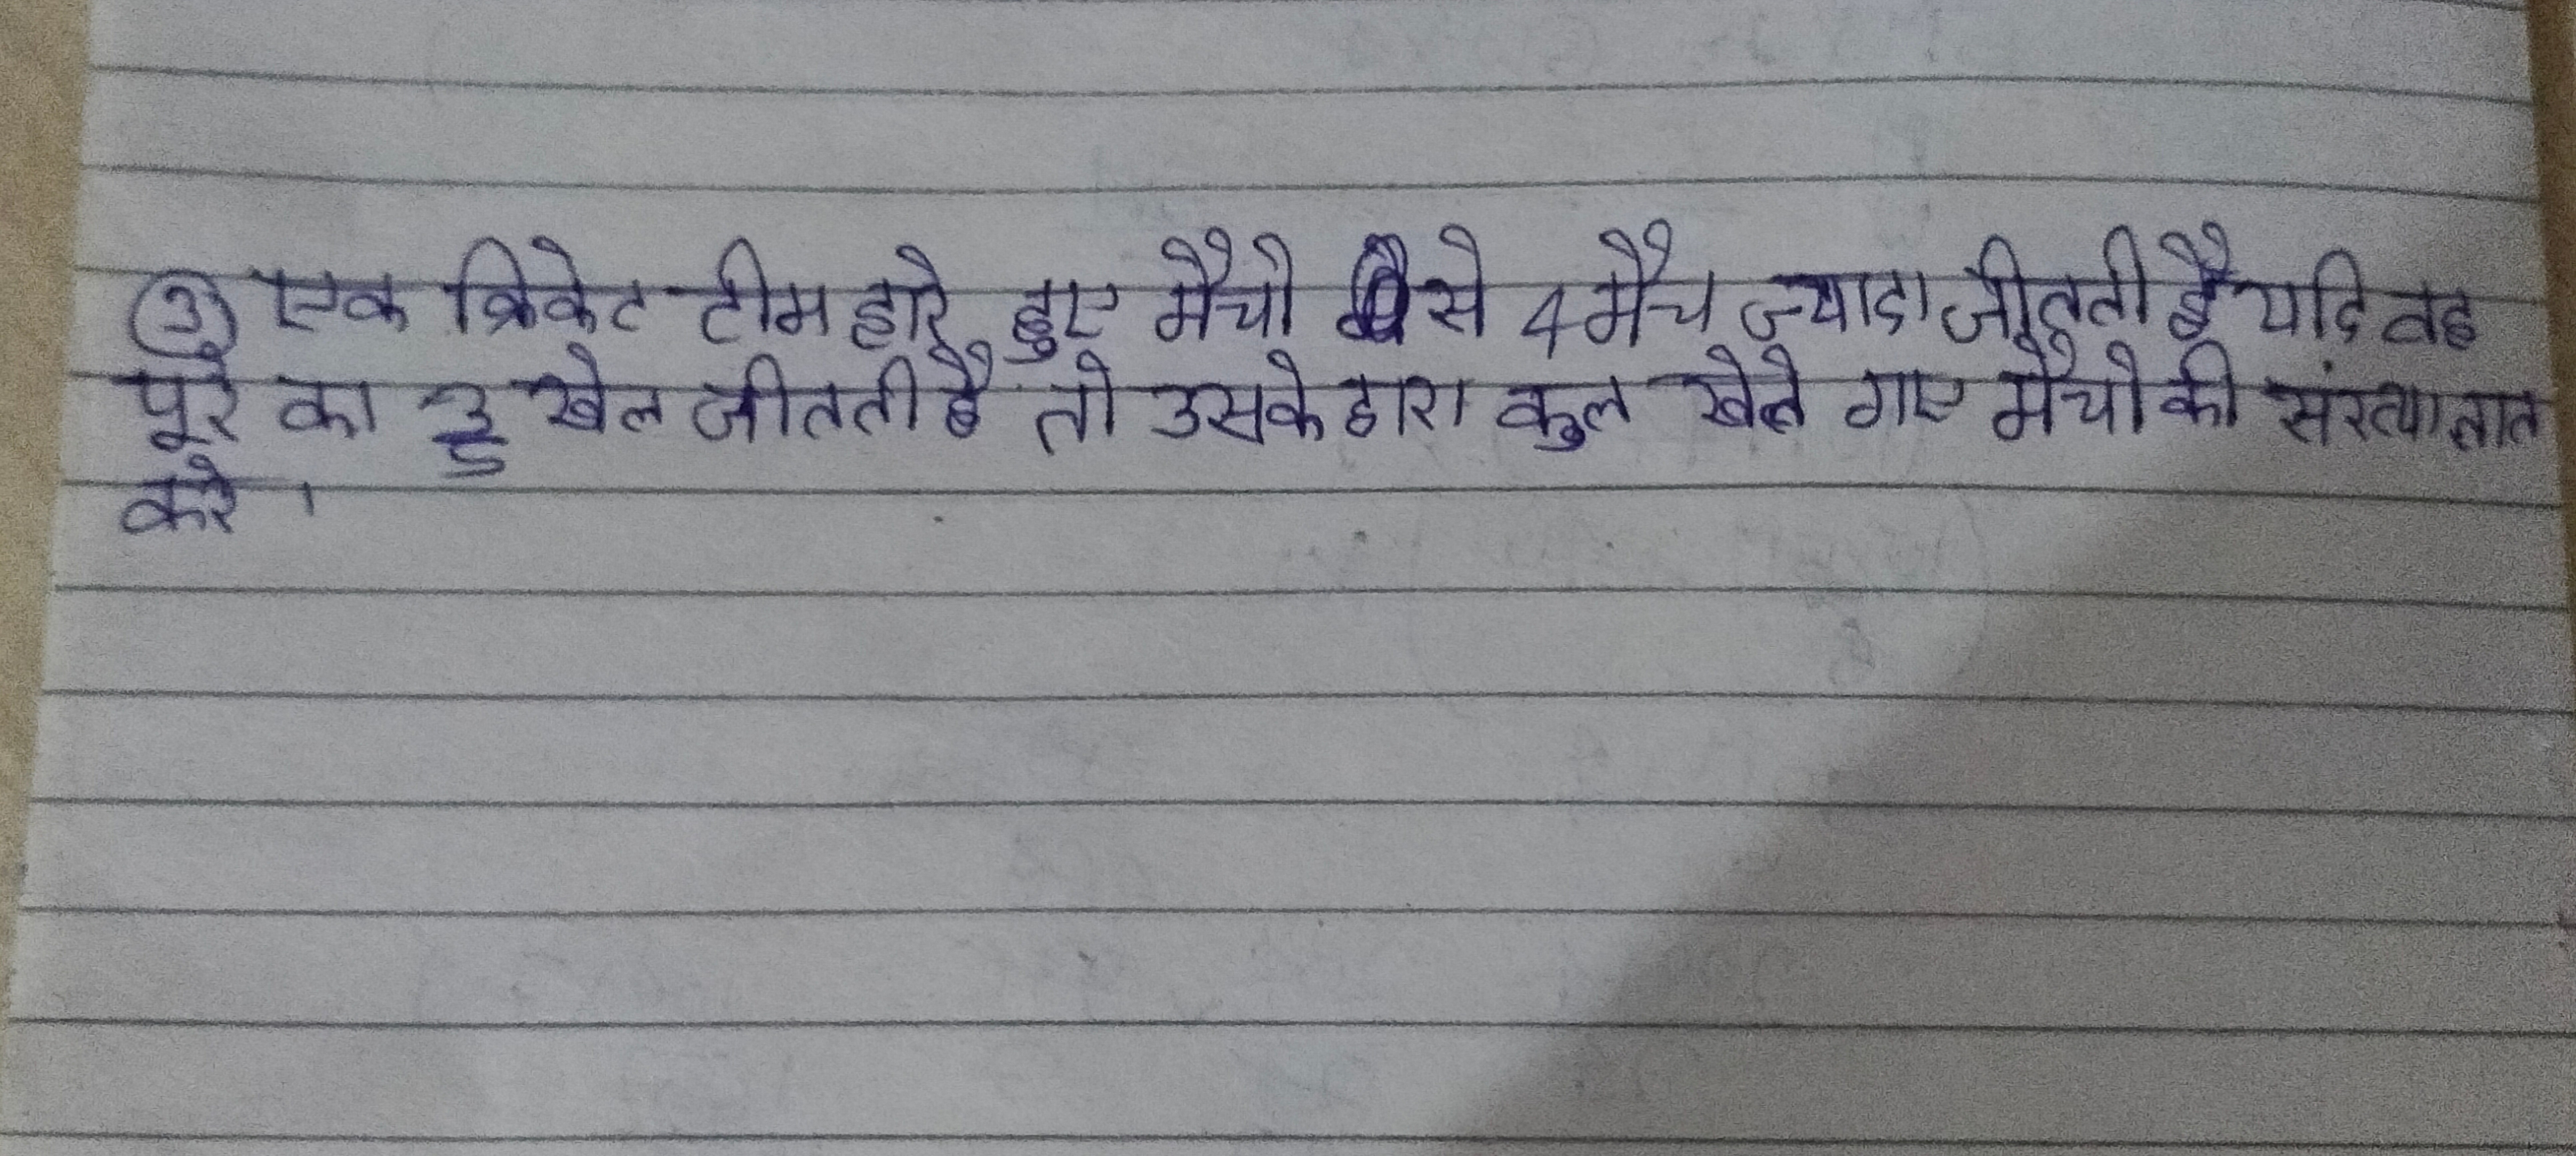 ③ एक क्रिकेट टीम हारे हुए मैचो से 4 मैच ज्यादा जीतती है यदि वह
पूरे का 3/5 खेल जीतती है तो उसके द्वारा कुल खेले गए मैचो की संख्या ज्ञात
करे ।